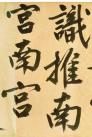 識推南
宮南宮